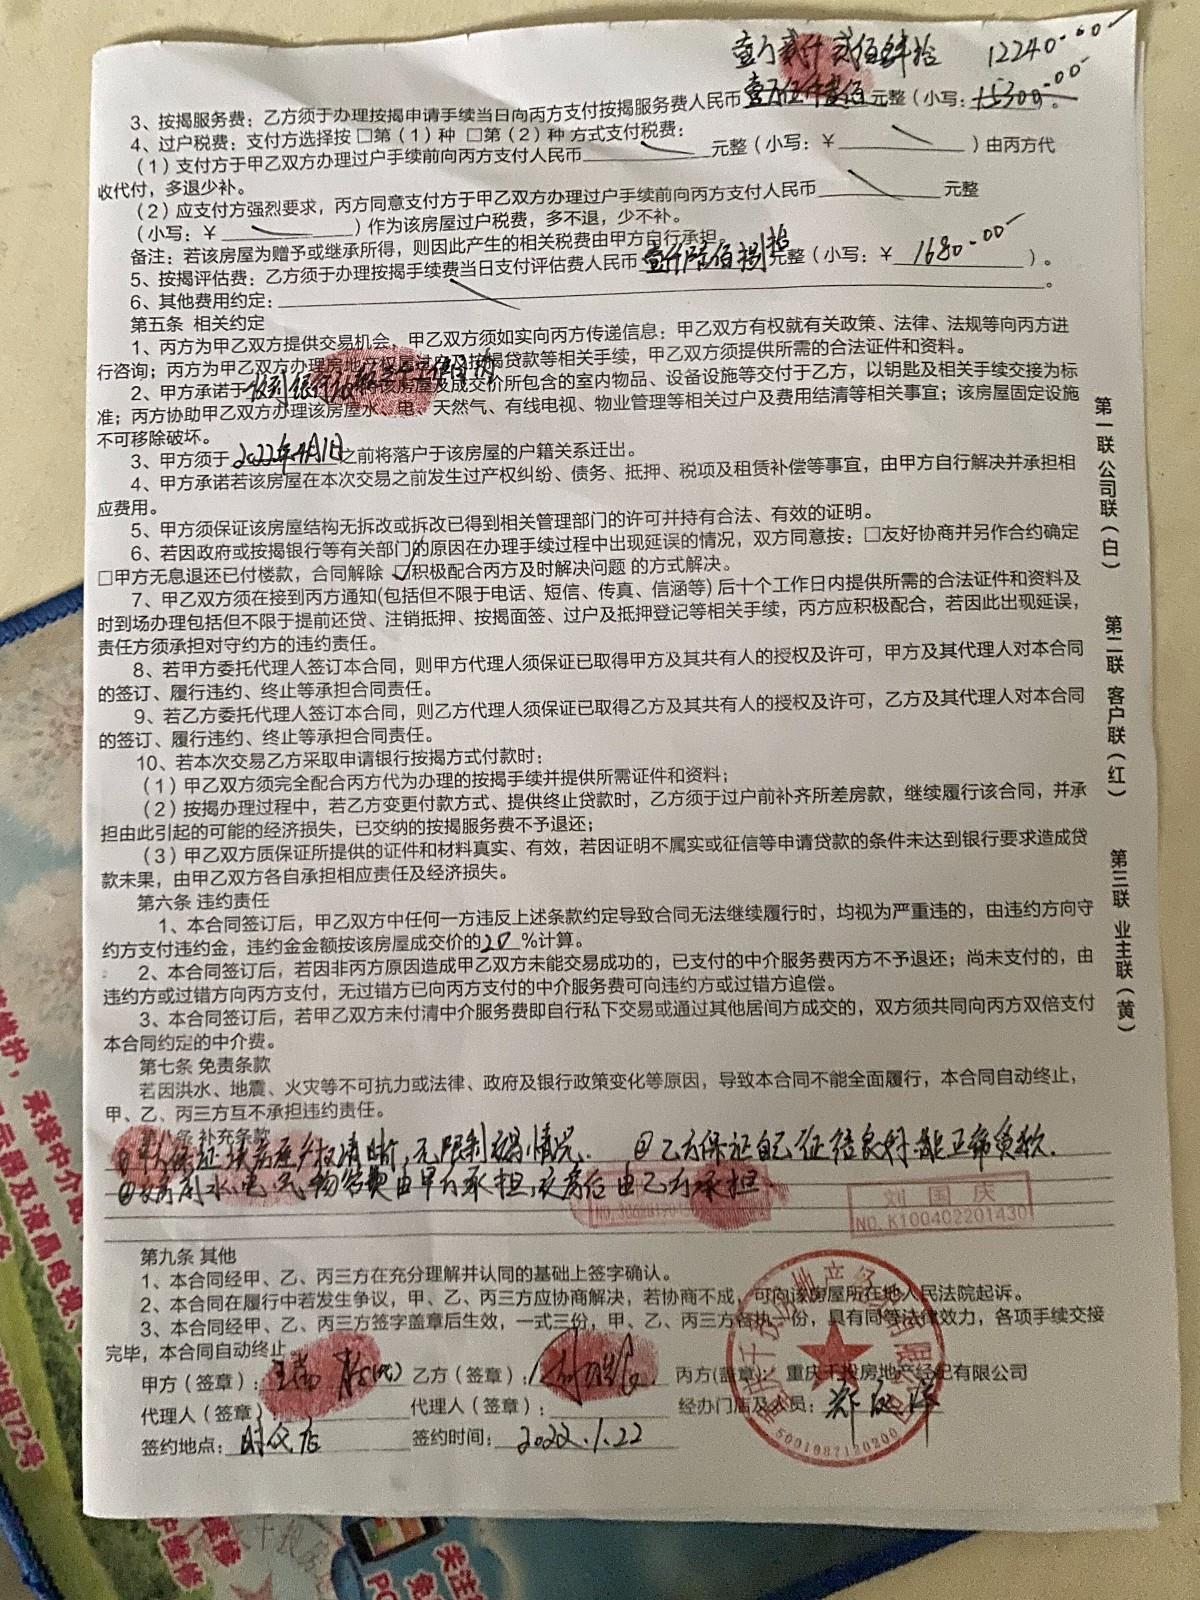 壹万贰仟贰佰肆拾 12240.00
3、按揭服务费：乙方须于办理按揭申请手续当日向丙方支付按揭服务费人民币壹万伍仟叁佰元整（小写：15300.00。
4、过户税费：支付方选择按 □第（1）种 □第（2）种 方式支付税费：
（1）支付方于甲乙双方办理过户手续前向丙方支付人民币 元整（小写：￥ ）由丙方代
收代付，多退少补。
（2）应支付方强烈要求，丙方同意支付方于甲乙双方办理过户手续前向丙方支付人民币 元整
（小写：￥ ）作为该房屋过户税费，多不退，少不补。
备注：若该房屋为赠予或继承所得，则因此产生的相关税费由甲方自行承担。
5、按揭评估费：乙方须于办理按揭手续费当日支付评估费人民币壹仟陆佰捌拾元整（小写：￥1680.00）。
6、其他费用约定： 。
第五条 相关约定
1、丙方为甲乙双方提供交易机会，甲乙双方须如实向丙方传递信息；甲乙双方有权就有关政策、法律、法规等向丙方进
行咨询；丙方为甲乙双方办理房地产权属过户及按揭贷款等相关手续，甲乙双方须提供所需的合法证件和资料。
2、甲方承诺于收到银行 该房屋及成交价所包含的室内物品、设备设施等交付于乙方，以钥匙及相关手续交接为标
准；丙方协助甲乙双方办理该房屋水、电、天然气、有线电视、物业管理等相关过户及费用结清等相关事宜；该房屋固定设施
不可移除破坏。
3、甲方须于2022年4月1日之前将落户于该房屋的户籍关系迁出。
4、甲方承诺若该房屋在本次交易之前发生过产权纠纷、债务、抵押、税项及租赁补偿等事宜，由甲方自行解决并承担相
应费用。
5、甲方须保证该房屋结构无拆改或拆改已得到相关管理部门的许可并持有合法、有效的证明。
6、若因政府或按揭银行等有关部门的原因在办理手续过程中出现延误的情况，双方同意按：□友好协商并另作合约确定
□甲方无息退还已付楼款，合同解除 ☑积极配合丙方及时解决问题 的方式解决。
7、甲乙双方须在接到丙方通知(包括但不限于电话、短信、传真、信涵等) 后十个工作日内提供所需的合法证件和资料及
时到场办理包括但不限于提前还贷、注销抵押、按揭面签、过户及抵押登记等相关手续，丙方应积极配合，若因此出现延误，
责任方须承担对守约方的违约责任。
8、若甲方委托代理人签订本合同，则甲方代理人须保证已取得甲方及其共有人的授权及许可，甲方及其代理人对本合同
的签订、履行违约、终止等承担合同责任。
9、若乙方委托代理人签订本合同，则乙方代理人须保证已取得乙方及其共有人的授权及许可，乙方及其代理人对本合同
的签订、履行违约、终止等承担合同责任。
10、若本次交易乙方采取申请银行按揭方式付款时：
（1）甲乙双方须完全配合丙方代为办理的按揭手续并提供所需证件和资料；
（2）按揭办理过程中，若乙方变更付款方式、提供终止贷款时，乙方须于过户前补齐所差房款，继续履行该合同，并承
担由此引起的可能的经济损失，已交纳的按揭服务费不予退还；
（3）甲乙双方质保证所提供的证件和材料真实、有效，若因证明不属实或征信等申请贷款的条件未达到银行要求造成贷
款未果，由甲乙双方各自承担相应责任及经济损失。
第六条 违约责任
1、本合同签订后，甲乙双方中任何一方违反上述条款约定导致合同无法继续履行时，均视为严重违的，由违约方向守
约方支付违约金，违约金金额按该房屋成交价的20%计算。
2、本合同签订后，若因非丙方原因造成甲乙双方未能交易成功的，已支付的中介服务费丙方不予退还；尚未支付的，由
违约方或过错方向丙方支付，无过错方已向丙方支付的中介服务费可向违约方或过错方追偿。
3、本合同签订后，若甲乙双方未付清中介服务费即自行私下交易或通过其他居间方成交的，双方须共同向丙方双倍支付
本合同约定的中介费。
第七条 免责条款
若因洪水、地震、火灾等不可抗力或法律、政府及银行政策变化等原因，导致本合同不能全面履行，本合同自动终止，
甲、乙、丙三方互不承担违约责任。
第八条 补充条款
①甲方保证该房屋产权清晰，无限制交易情况。 ②乙方保证自己征信良好，能正常贷款.
③交房前水、电、气、物管费由甲方承担，交房后由乙方承担.
刘国庆
NO.K100402201430
第九条 其他
1、本合同经甲、乙、丙三方在充分理解并认同的基础上签字确认。
2、本合同在履行中若发生争议，甲、乙、丙三方应协商解决，若协商不成，可向该房屋所在地人民法院起诉。
3、本合同经甲、乙、丙三方签字盖章后生效，一式三份，甲、乙、丙三方各执一份，具有同等法律效力，各项手续交接
完毕，本合同自动终止。
甲方（签章）： 乙方（签章）： 丙方(盖章)：重庆千投房地产经纪有限公司
代理人（签章）： 代理人（签章）： 经办门店及人员：
签约地点： 签约时间：2022.1.22
5001987120200
第一联 公司联（白）
第二联 客户联（红）
第三联 业主联（黄）